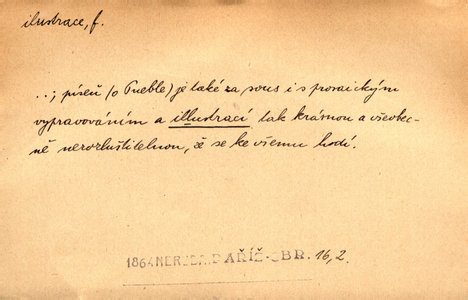 ilustrace, f.
..; píseň (o Pueble) je také za sous i s prosaickým
vypravováním a illustrací tak krásnou a všeobec-
ně nerozluštitelnou, že se ke všemu hodí.
1864 NERUDA, PAŘÍŽ-OBR. 16, 2.